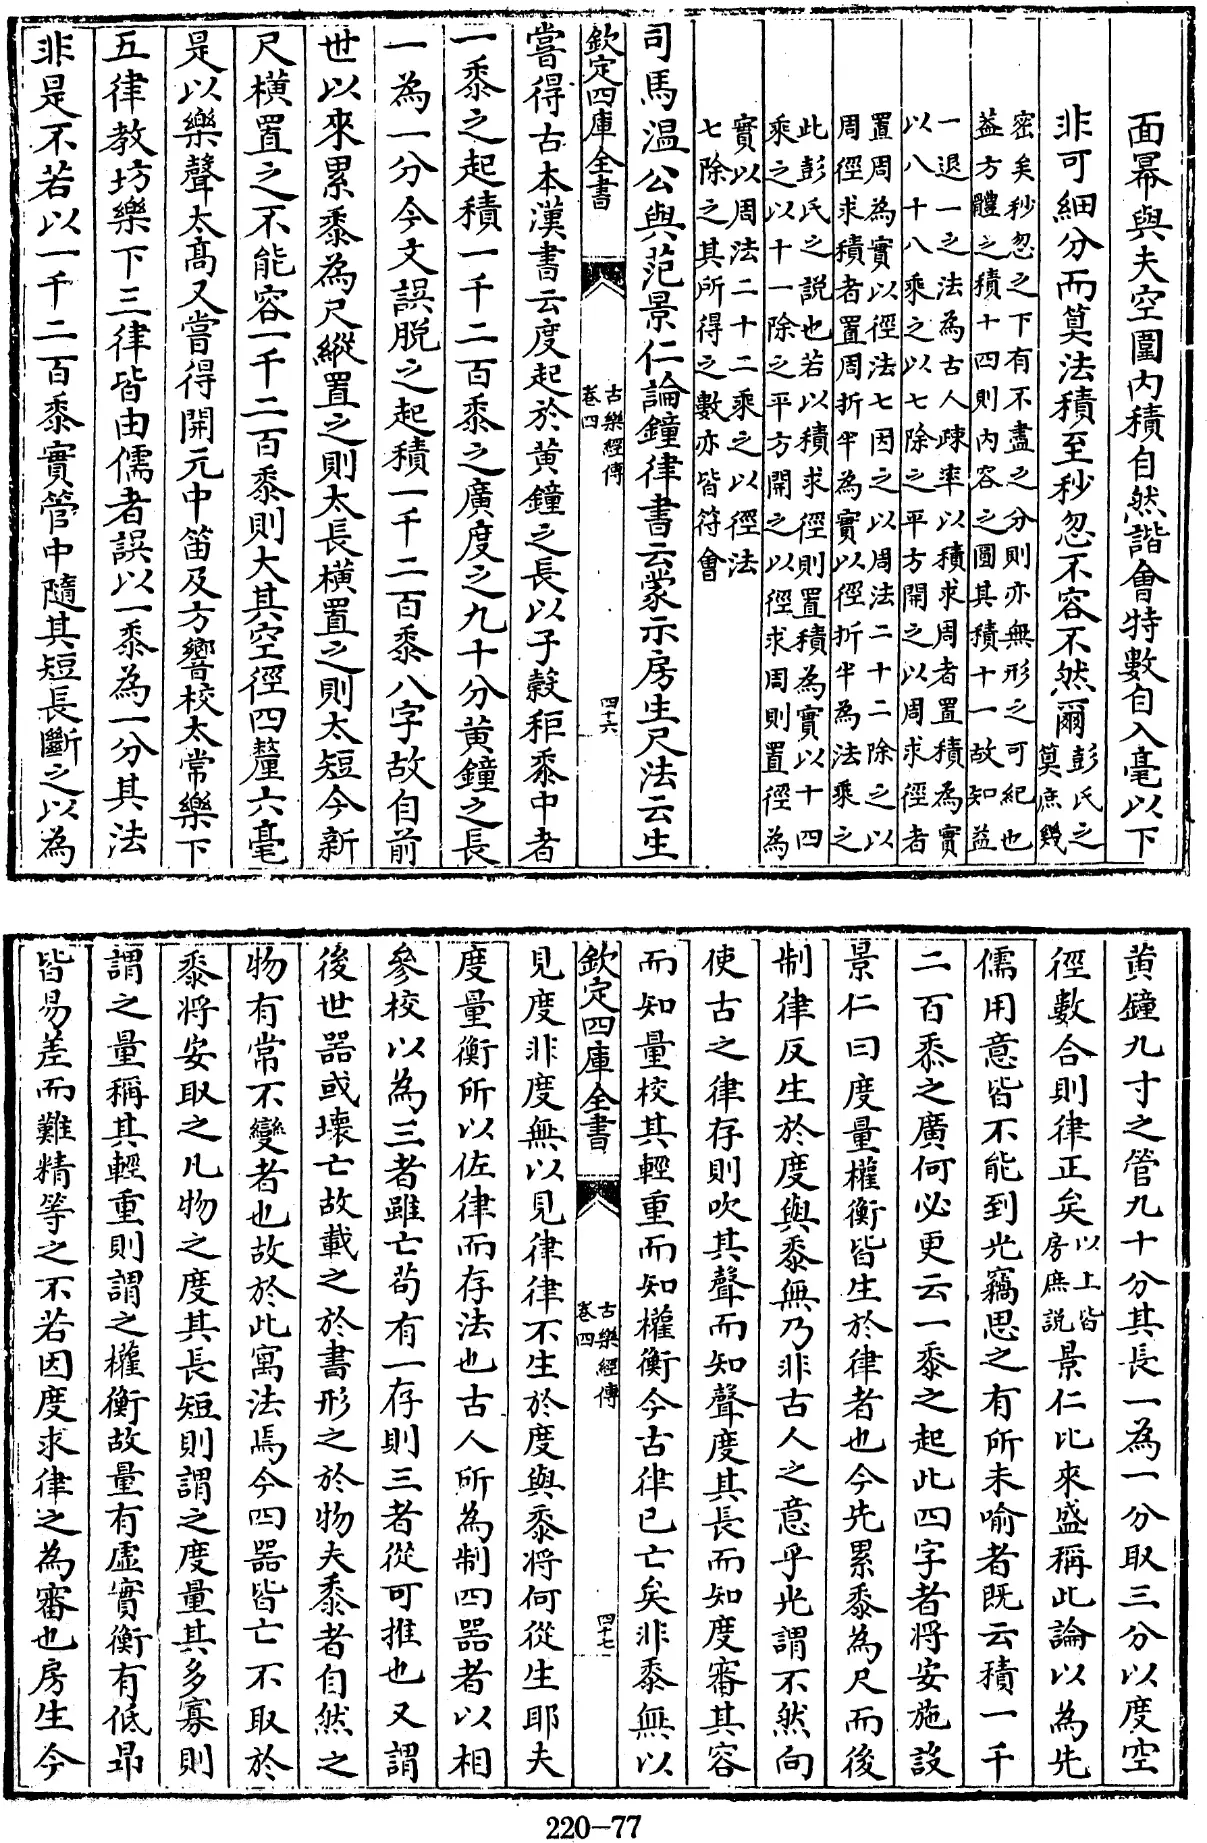 面冪與夫空圍內積自然諧會特數自入毫以下
非可細分而算法積至秒忽不容不然爾彭氏之
算庶幾
密矣秒忽之下有不盡之分則亦無形之可紀也
蓋方體之積十四則內容之圓其積十一故知益
一退一之法為古人疎率以積求周者置積為實
以八十八乘之以七除之平方開之以周求徑者
置周為實以徑法七因之以周法二十二除之以
周徑求積者置周折半為實以徑折半為法乘之
此彭氏之説也若以積求徑則置積為實以十四
乘之以十一除之平方開之以徑求周則置徑為
實以周法二十二乘之以徑法
七除之其所得之數亦皆符會
司馬溫公與范景仁論鐘律書云蒙示房生尺法云生
欽定四庫全書
古樂經傳
卷四
四十六
嘗得古本漢書云度起於黃鐘之長以子穀秬黍中者
一黍之起積一千二百黍之廣度之九十分黃鐘之長
一為一分今文誤脱之起積一千二百黍八字故自前
世以來累黍為尺縱置之則太長橫置之則太短今新
尺橫置之不能容一千二百黍則大其空徑四釐六毫
是以樂聲太高又嘗得開元中笛及方響校太常樂下
五律教坊樂下三律皆由儒者誤以一黍為一分其法
非是不若以一千二百黍實管中隨其短長斷之以為
黃鐘九寸之管九十分其長一為一分取三分以度空
徑數合則律正矣以上皆
房庶説
景仁比來盛稱此論以為先
儒用意皆不能到光竊思之有所未喻者既云積一千
二百黍之廣何必更云一黍之起此四字者將安施設
景仁曰度量權衡皆生於律者也今先累黍為尺而後
制律反生於度與黍無乃非古人之意乎光謂不然向
使古之律存則吹其聲而知聲度其長而知度審其容
而知量校其輕重而知權衡今古律已亡矣非黍無以
欽定四庫全書
古樂經傳
卷四
四十七
見度非度無以見律律不生於度與黍將何從生耶夫
度量衡所以佐律而存法也古人所為制四器者以相
參校以為三者雖亡苟有一存則三者從可推也又謂
後世器或壞亡故載之於書形之於物夫黍者自然之
物有常不變者也故於此寓法焉今四器皆亡不取於
黍將安取之凡物之度其長短則謂之度量其多寡則
謂之量稱其輕重則謂之權衡故量有虛實衡有低昂
皆易差而難精等之不若因度求律之為審也房生今
220-77